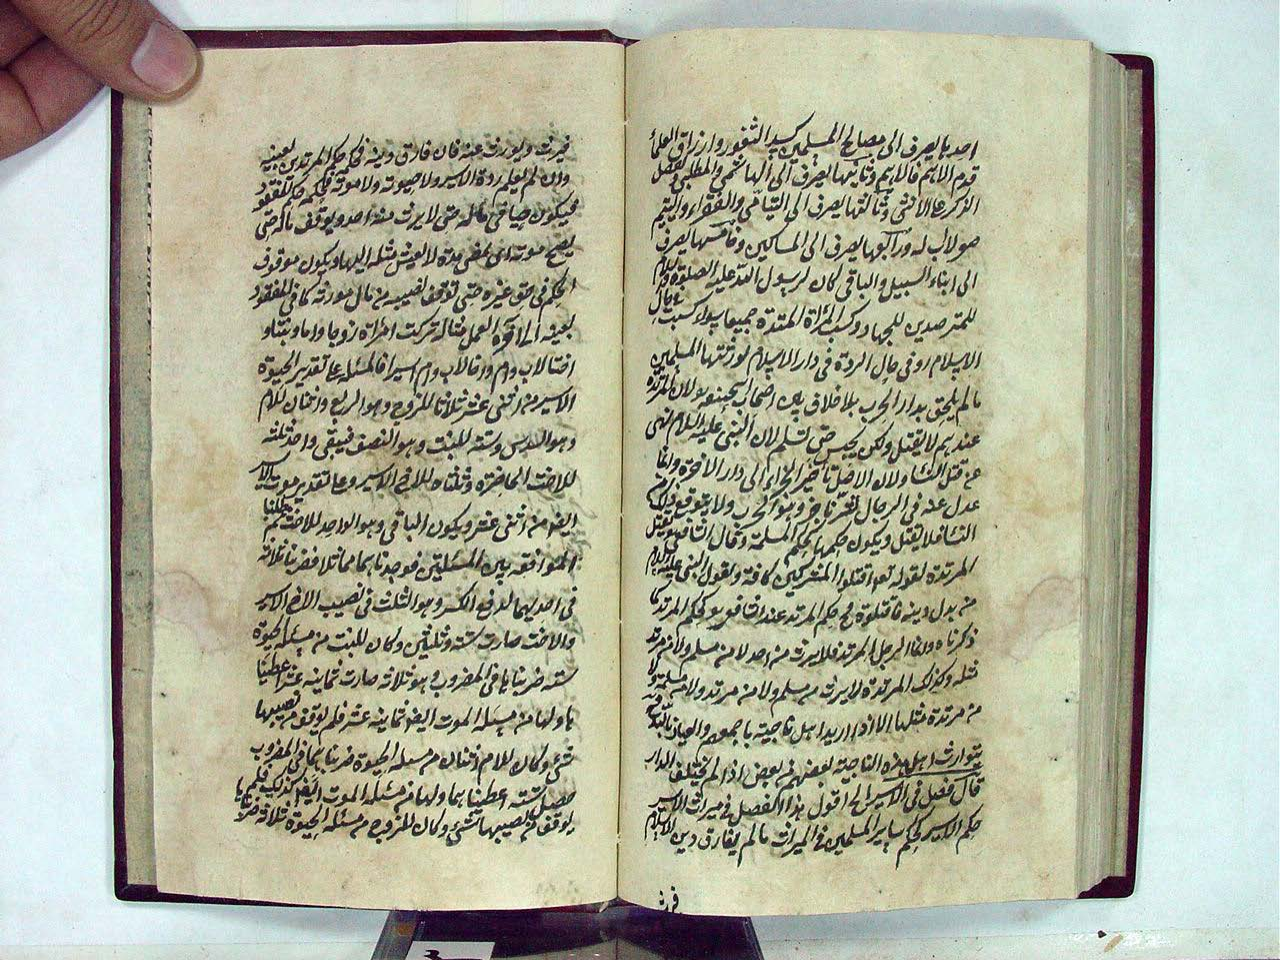 احدها يصرف الى مصالح المسلمين كسد الثغور وارزاق العلما
قدم الاهم فالاهم وثانيها يصرف الى الهاشمي والمطلبي وتفضل
الذكر على الانثى وثالثها يصرف الى اليتامى والفقراء واليتيم
هو لا اب له ورابعها يصرف الى المساكين وخامسها يصرف
الى ابناء السبيل والباقي كان لرسول الله عليه الصلوة والسلام
للمترصدين للجهاد وكسب المرأة المرتدة جميعا سواء كسبت في حال
الاسلام او في حال الردة في دار الاسلام لورثتها المسلمين
ما لم يلحق بدار الحرب بلا خلاف بين اصحاب لان المرتدة
عندهم لا يقتل ولكن يحبس حتى تسلم لان النبي عليه السلام نهى
عن قتل النساء ولان الاصل تأخير الجزاء الى دار الاخرة وانما
عدل عنه في الرجال لشر ناجز وهو الحرب ولا يتوقع ذلك من
النساء فلا يقتل ويكون حكمها كحكم المسلمة وقال الشافعي يقتل
المرتدة لقوله تعالى اقتلوا المشركين كافة ولقول النبي عليه السلام
من بدل دينه فاقتلوه فحكم المرتد عند الشافعي كحكم المرتد كما
ذكرناه واما الرجل المرتد فلا يرث من احد لا من مسلم ولا من مرتد
مثله وكذلك المرتدة لا يرث من مسلم ولا من مرتد ولا من مسلمة ولا
من مرتدة مثلها الا اذا ارتد اهل ناحية باجمعهم والعياذ بالله
يتوارث اهل هذه الناحية بعضهم من بعض اذا لم يختلف الدار
قال فصل في الاسير الخ اقول هذا الفصل في ميراث الاسير
حكم الاسير كحكم ساير المسلمين في الميراث ما لم يفارق دين الاسلام
فيرث
فيرث ويورث عنه فان فارق دينه فحكمه حكم المرتدين بعينه
وان لم يعلم ردة الاسير ولا حيوته ولا موته فحكمه حكم المفقود
فيكون حيا في ماله حتى لا يرث منه احد ويوقف ماله حتى
يصح موته اى تمضى مدة لا يعيش مثله اليها ويكون موقوف
الحكم في حق غيره حتى توقف نصيبه من مال مورثه كما في المفقود
بعينه الى اخره العمل مثاله تركت امرأة زوجا واما وبنتا و
اختا لاب وام واخا لاب وام اسيرا فالمسئلة على تقدير الحيوة
الاسير من اثنى عشر ثلاثة للزوج وهو الربع واثنان للام
وهو السدس وستة للبنت وهو النصف فيبقى واحد ثلثه
للاخت الحاضرة وثلثاه للاخ الاسير وعلى تقدير موت الاسير
ايضا من اثنى عشر ويكون الباقي وهو الواحد للاخت ثم طلبنا
الموافقة بين المسئلتين فوجدناهما مماثلا فضربنا ثلاثة
في احديهما لدفع الكسر وهو الثلث في نصيب الاخ الاسير
والاخت صارت ستة وثلثين وكان للبنت من مسئلة الحيوة
ستة ضربناها في المضروب وهو ثلاثة صارت ثمانية عشر اعطينا
ها ولها من مسئلة الموت ايضا ثمانية عشر فلم يوقف من نصيبها
شئ وكان للام اثنان من مسئلة الحيوة ضربناهما في المضروب
حصل ستة اعطيناهما ولها من مسئلة الموت ايضا كذلك فلم
يوقف من نصيبها شئ وكان للزوج من مسئلة الحيوة ثلاثة ضربناها